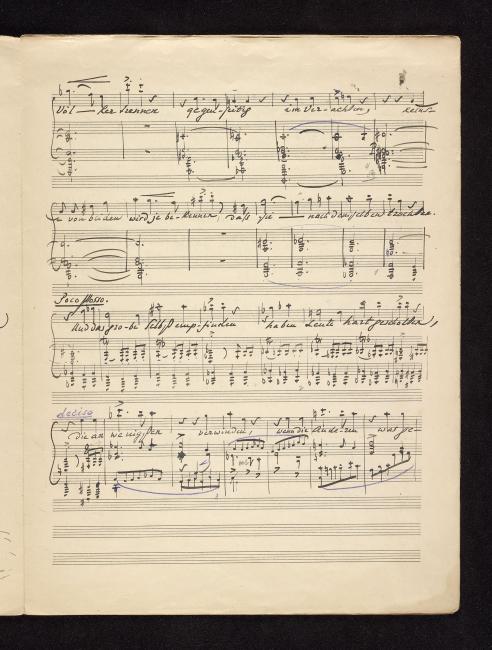 Völ - ker trennen gegen-seitig im Ver-achten, keins
von beiden wird je be-kennen, daß sie nach demselben trachten.
Poco Mosso.
Und das gro-be Selbstemp-finden haben Leute hart gescholten,
deciso
die am we-nig-sten verwinden, wenn die Ande-ren was ge-